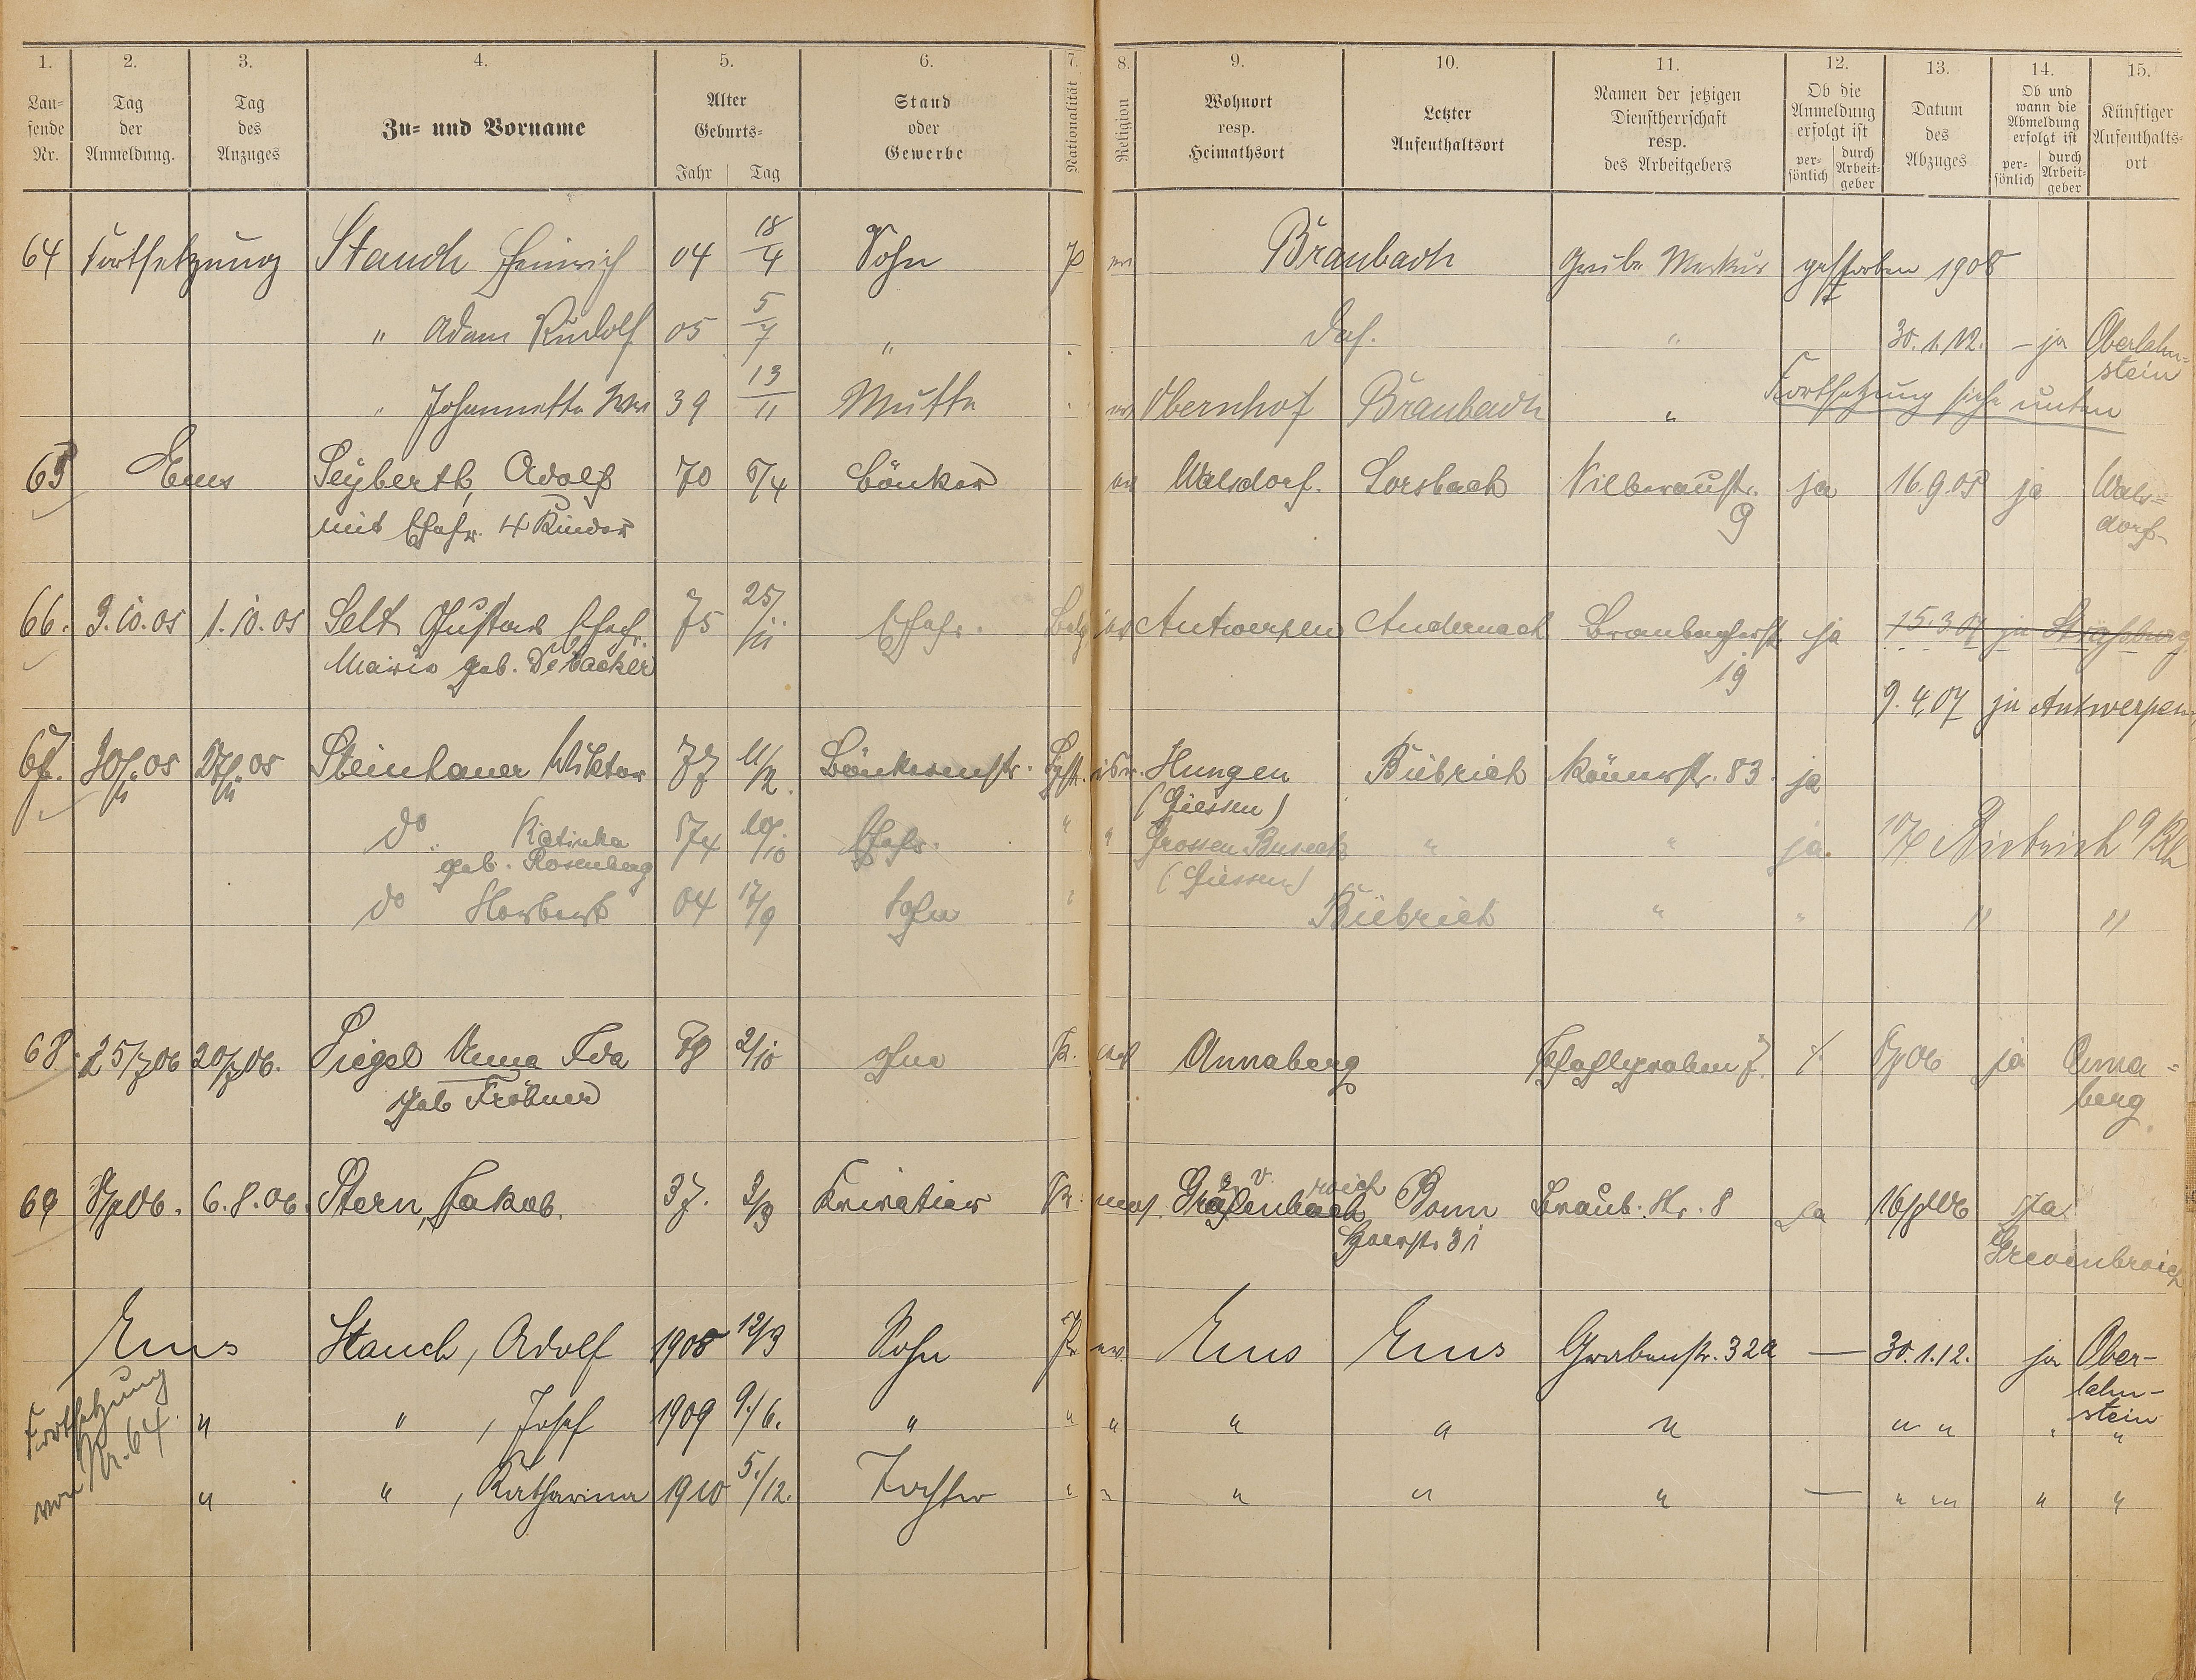 1. 2. 3. 4. 5. 6. 7. 8. 9. 10. 11. 12. 13. 14. 15.
Laufende Nr. | Tag der Anmeldung. | Tag des Anzuges | Zu- und Vorname | Alter Geburts- Jahr Tag | Stand oder Gewerbe | Nationalität | Religion | Wohnort resp. Heimathsort | Letzter Aufenthaltsort | Namen der jetzigen Dienstherrschaft resp. des Arbeitgebers | Ob die Anmeldung erfolgt ist persönlich durch Arbeitgeber | Datum des Abzuges | Ob und wann die Abmeldung erfolgt ist persönlich durch Arbeitgeber | Künftiger Aufenthaltsort
64 Fortsetzung Stauch Heinrich 04 18/4 Sohn P ev Braubach Grube Merkur gestorben 1908
" Adam Rudolf 05 5/7 " das. " 30.1.12. – ja Oberlahn=
stein
" Johannette Wwe 39 13/11 Mutter ev Obernhof Braubach " Fortsetzung siehe unten
65 Ems Seyberth, Adolf 70 5/4 Bäcker ev Walsdorf. Lorsbach Silberaustr. ja 16.9.05 ja Wals=
mit Ehefr. 4 Kinder 9 dorf
66. 3.10.05 1.10.05 Selt Gustav Ehefr. 75 25/11 Ehefr. Belg Antwerpen Andernach Braubacherstr ja 15.3.07 ja Straßburg
Marie geb. De backer 19
9.4.07 ja Antwerpen
67. 30/11.05 27/11.05 Steinhauer Wiktor 77 11/2. isr. Hungen Biebrich Römerstr. 83 ja
(Giessen)
do Katinka 74 10/10 Ehefr. " " Grossen Buseck " " ja. Biebrich a/Rh
geb. Rosenberg (Giessen)
do Herbert 04 17/9 Sohn " Biebrich " " " "
68. 25/7 06 20/7 06. Siegel Anna Eva 78 2/10 ohne Pr. Annaberg Pfahlgraben 7. ja Anna=
geb Frobner berg.
69 8/8 06. 6.8.06. Stern, Jakob. 37. 3/9 Privatier Pr. mos. Grevenbroich Bonn Braub. Str. 8 ja 16/8 06 ja
31 Grevenbroich
Ems Stauch, Adolf 1908 12/3 Sohn Pr ev. Ems Ems Grabenstr. 32a — 30.1.12. ja Ober-
lahn-
stein
Fortsetzung
von Nr. 64
" " , Josef 1909 9./6. " " " " " " " " " "
" " , Katharina 1910 5./12. Tochter " " " " " — " " " "